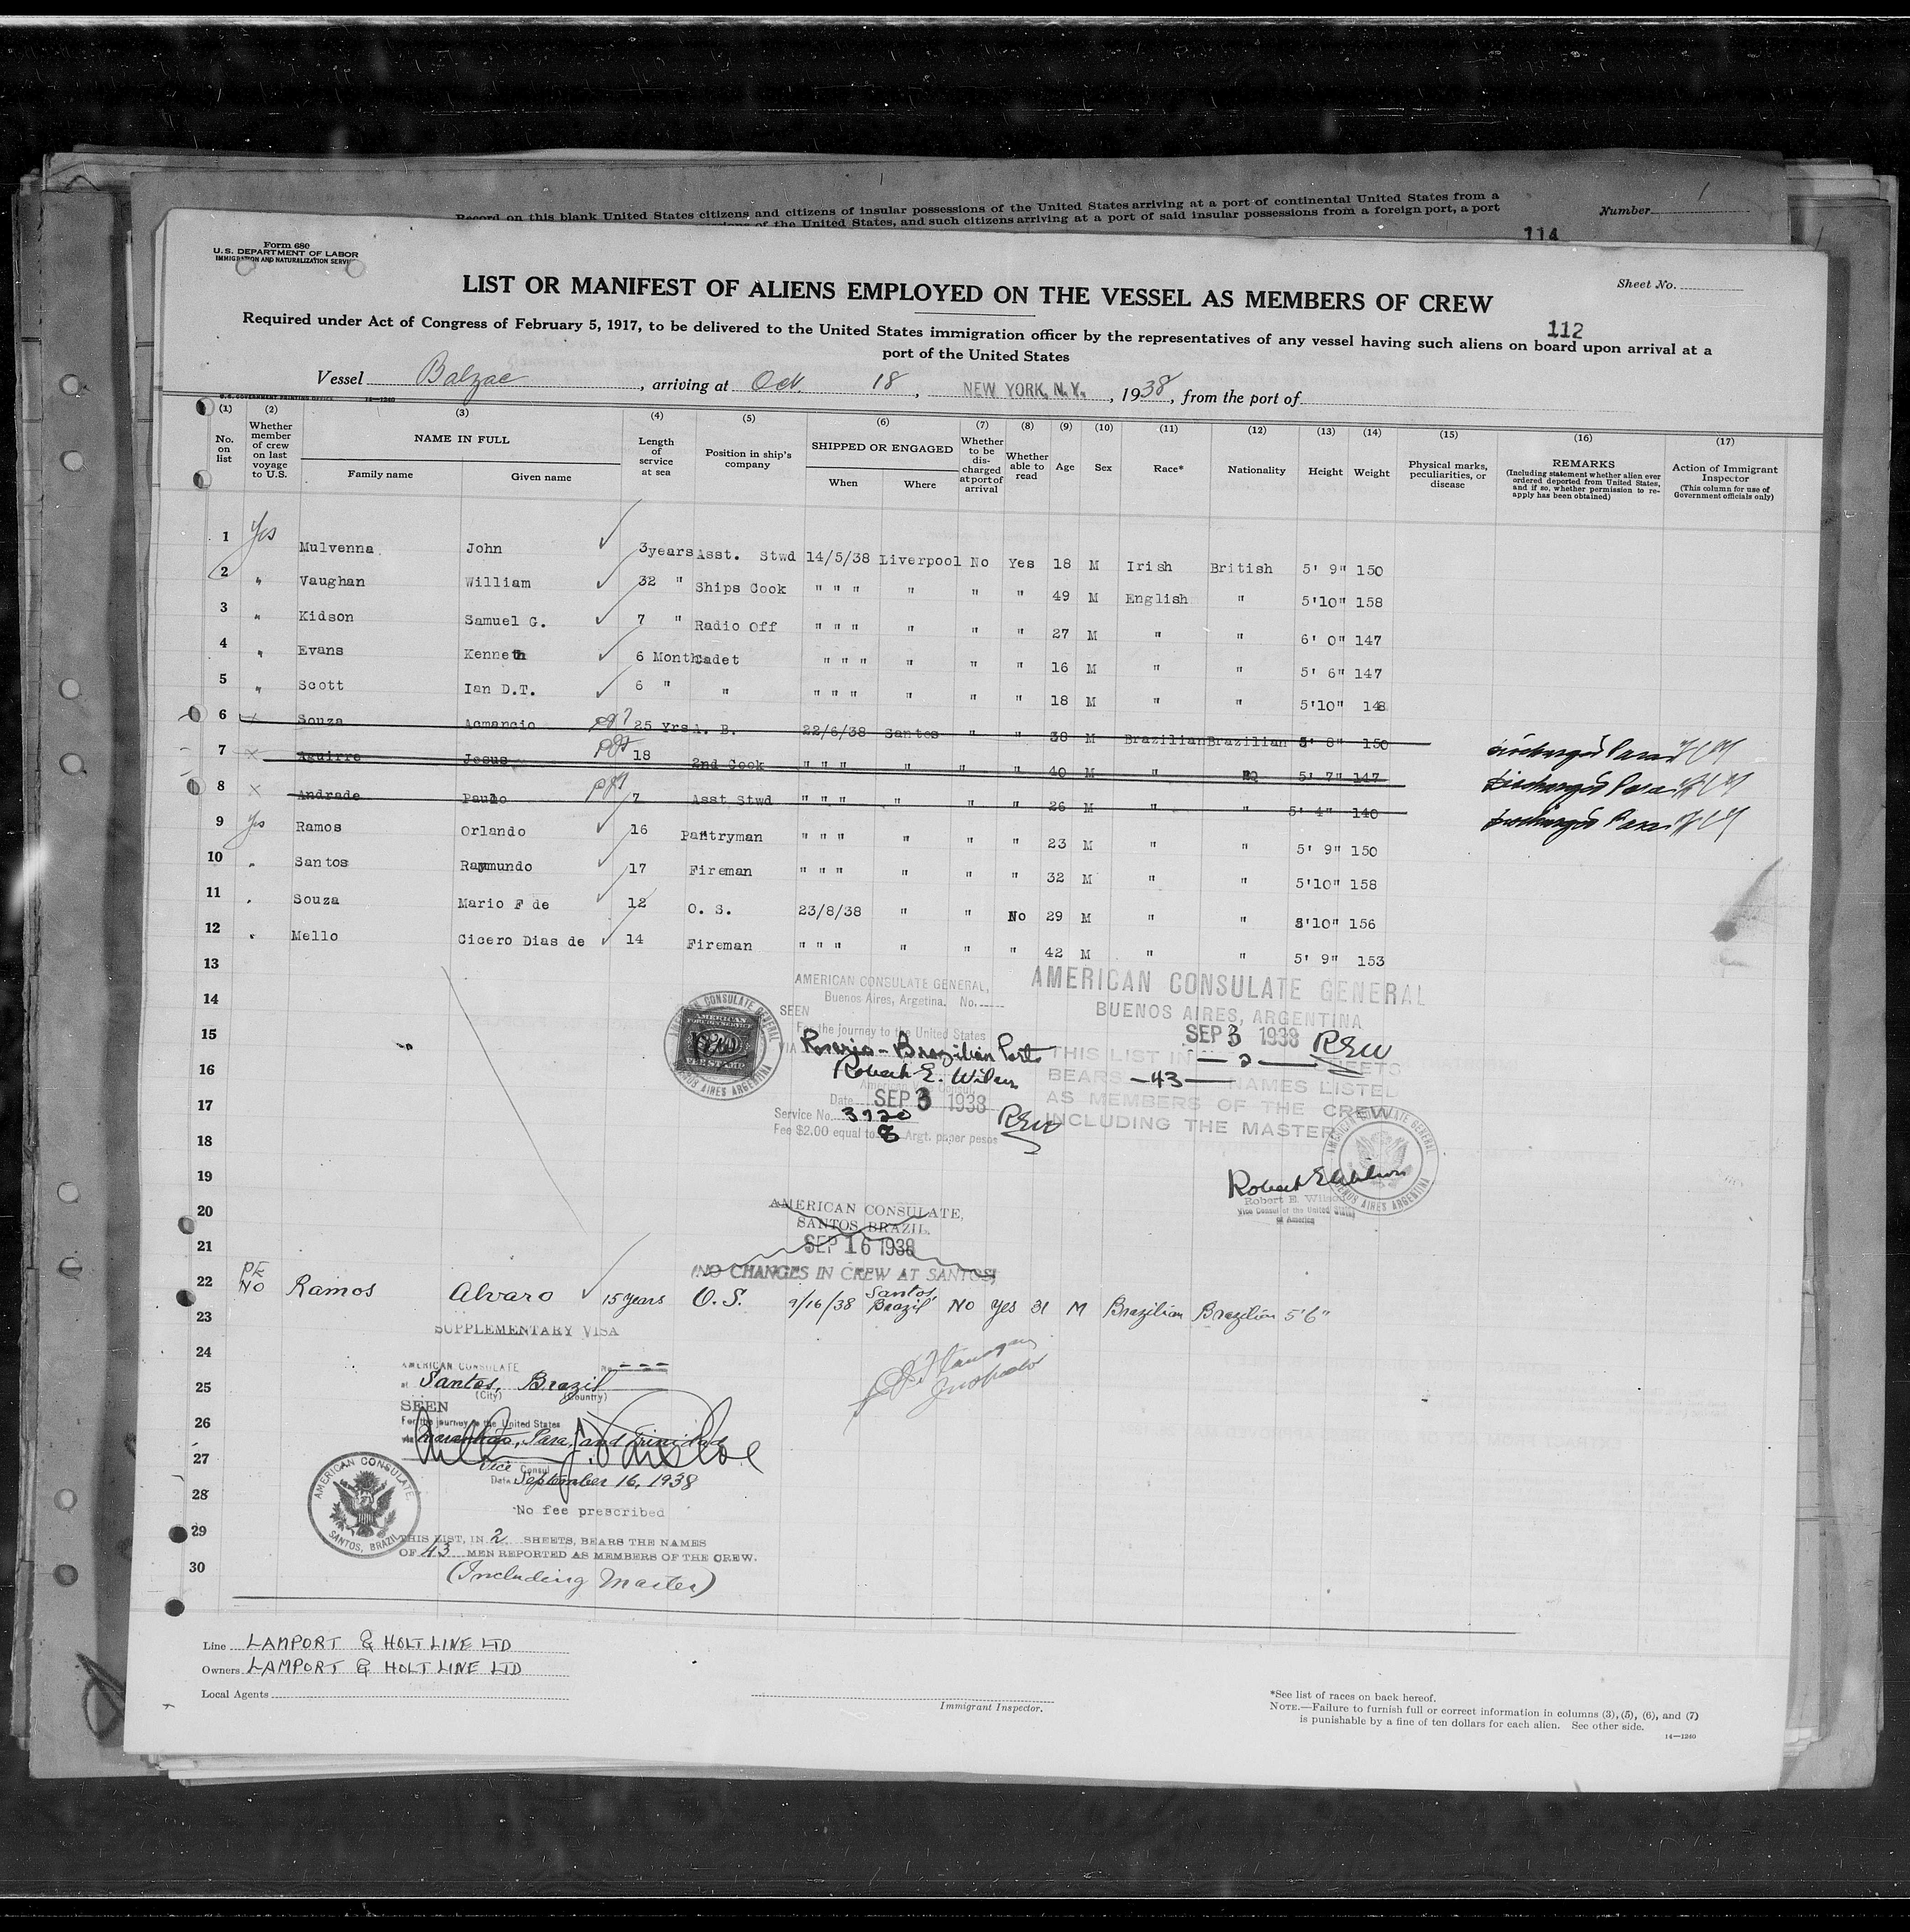 Record on this blank United States citizens and citizens of insular possessions of the United States arriving at a port of continental United States from a
of the United States, and such citizens arriving at a port of said insular possessions from a foreign port, a port
Number 1
114
Form 680
U.S. DEPARTMENT OF LABOR
IMMIGRATION AND NATURALIZATION SERVICE
Sheet No.
LIST OR MANIFEST OF ALIENS EMPLOYED ON THE VESSEL AS MEMBERS OF CREW
112
Required under Act of Congress of February 5, 1917, to be delivered to the United States immigration officer by the representatives of any vessel having such aliens on board upon arrival at a
port of the United States
Vessel Balzac, arriving at Oct. 18, NEW YORK, N.Y., 1938, from the port of
U.S. GOVERNMENT PRINTING OFFICE 14—1240
(1) (2) (3) (4) (5) (6) (7) (8) (9) (10) (11) (12) (13) (14) (15) (16) (17)
No. on list
Whether member of crew on last voyage to U.S.
NAME IN FULL
Family name
Given name
Length of service at sea
Position in ship's company
SHIPPED OR ENGAGED
When
Where
Whether to be discharged at port of arrival
Whether able to read
Age
Sex
Race*
Nationality
Height
Weight
Physical marks, peculiarities, or disease
REMARKS
(Including statement whether alien ever ordered deported from United States, and if so, whether permission to re-apply has been obtained)
Action of Immigrant Inspector
(This column for use of Government officials only)
1 Yes Mulvenna John 3years Asst. Stwd 14/5/38 Liverpool No Yes 18 M Irish British 5' 9" 150
2 " Vaughan William 32 " Ships Cook " " " " " " 49 M English " 5'10" 158
3 " Kidson Samuel G. 7 " Radio Off " " " " " " 27 M " " 6' 0" 147
4 " Evans Kenneth 6 Month Cadet " " " " " " 16 M " " 5' 6" 147
5 " Scott Ian D.T. 6 " " " " " " " " 18 M " " 5'10" 148
6 x Souza Acmancio 25 yrs A. B. 22/6/38 Santos " " 38 M Brazilian Brazilian 5' 8" 150 Discharged Para
7 x Aguirre Jesus 18 2nd Cook " " " " " " 40 M " 5' 7" 147 Discharged Para
8 x Andrade Paulo 7 Asst Stwd " " " " " " 26 M " " 5' 4" 140 Discharged Para
9 Yes Ramos Orlando 16 Pantryman " " " " " " 23 M " " 5' 9" 150
10 " Santos Raymundo 17 Fireman " " " " " " 32 M " " 5'10" 158
11 " Souza Mario F de 12 O. S. 23/8/38 " " No 29 M " " 5'10" 156
12 " Mello Cicero Dias de 14 Fireman " " " " " " 42 M " " 5' 9" 153
13
14
15
16
17
18
19
20
21
AMERICAN CONSULATE GENERAL,
Buenos Aires, Argetina. No.
SEEN
For the journey to the United States
VIA Rosario - Brazilian Ports
Robert E. Wilson
American Vice Consul
Date SEP 3 1938
Service No. 3920 REW
Fee $2.00 equal to 8 Argt. paper pesos
AMERICAN FOREIGN SERVICE
FEE STAMP
AMERICAN CONSULATE GENERAL
BUENOS AIRES ARGENTINA
AMERICAN CONSULATE GENERAL
BUENOS AIRES, ARGENTINA
SEP 3 1938 REW
THIS LIST IN - 2 - SHEETS
BEARS - 43 - NAMES LISTED
AS MEMBERS OF THE CREW
INCLUDING THE MASTER
Robert E Wilson
Robert E. Wilson
Vice Consul of the United States
of America
AMERICAN CONSULATE GENERAL
BUENOS AIRES ARGENTINA
AMERICAN CONSULATE,
SANTOS, BRAZIL.
SEP 16 1938
(NO CHANGES IN CREW AT SANTOS)
22 PE NO Ramos Alvaro 15 years O.S. 9/16/38 Santos, Brazil No Yes 31 M Brazilian Brazilian 5'6"
23
24
25
26
27
28
29
30
SUPPLEMENTARY VISA
AMERICAN CONSULATE No. ---
at Santos, Brazil
(City) (Country)
SEEN
For the journey to the United States
via Maranhao, Para, and Trinidad
Vice Consul
Date September 16, 1938
No fee prescribed
AMERICAN CONSULATE
SANTOS, BRAZIL
THIS LIST, IN 2 SHEETS, BEARS THE NAMES
OF 43 MEN REPORTED AS MEMBERS OF THE CREW.
(Including Master)
Line LAMPORT & HOLT LINE LTD
Owners LAMPORT & HOLT LINE LTD
Local Agents
Immigrant Inspector.
*See list of races on back hereof.
NOTE.—Failure to furnish full or correct information in columns (3), (5), (6), and (7)
is punishable by a fine of ten dollars for each alien. See other side.
14—1240